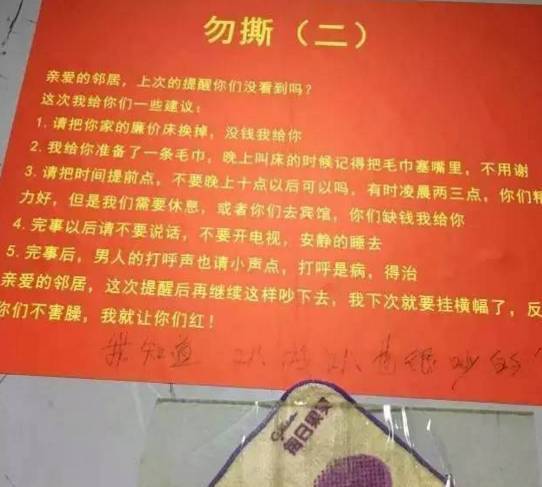 勿撕（二）
亲爱的邻居，上次的提醒你们没看到吗？
这次我给你们一些建议：
1.请把你家的廉价床换掉，没钱我给你
2.我给你准备了一条毛巾，晚上叫床的时候记得把毛巾塞嘴里，不用谢
3.请把时间提前点，不要晚上十点以后可以吗，有时凌晨两三点，你们精
力好，但是我们需要休息，或者你们去宾馆，你们缺钱我给你
4.完事以后请不要说话，不要开电视，安静的睡去
5.完事后，男人的打呼声也请小声点，打呼是病，得治
亲爱的邻居，这次提醒后再继续这样吵下去，我下次就要挂横幅了，反
你们不害臊，我就让你们红！
我知道
每日果叉